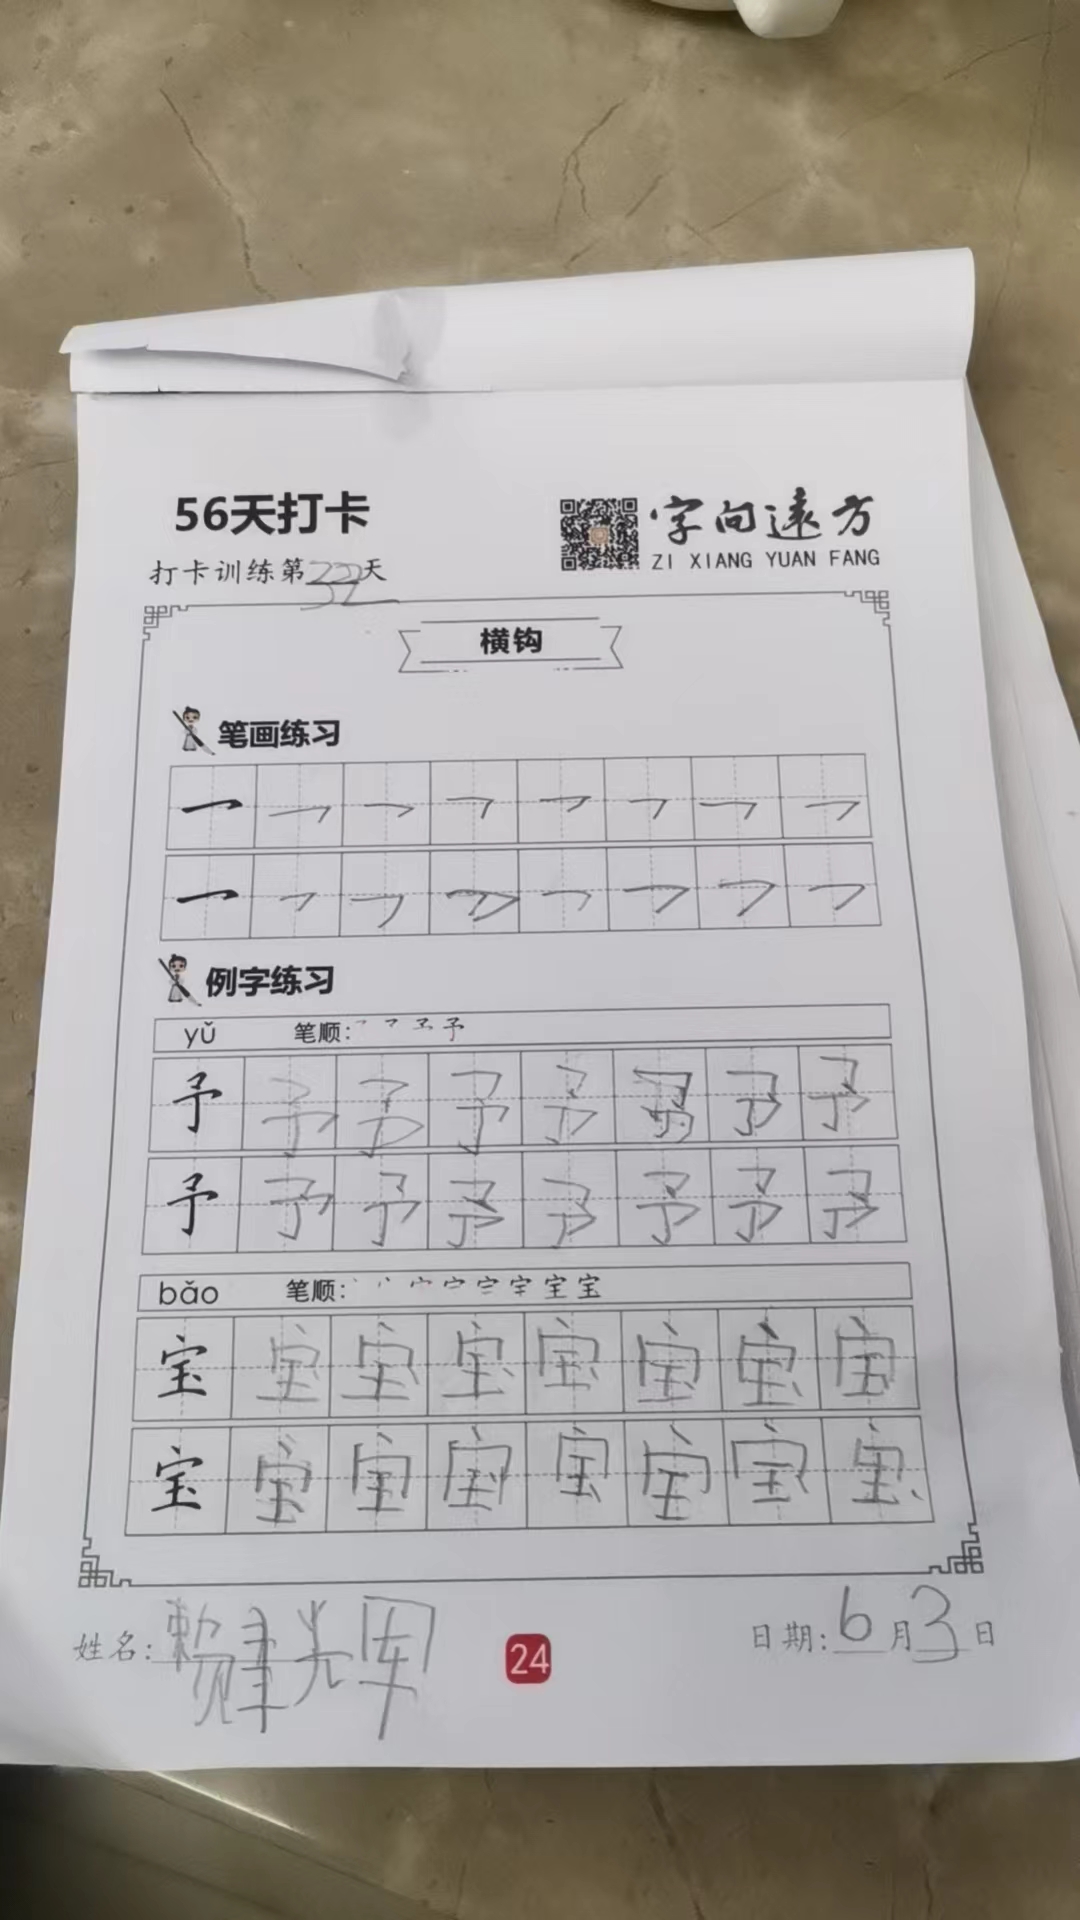 56天打卡
字向远方
ZI XIANG YUAN FANG
打卡训练第 天
横钩
笔画练习
例字练习
yǔ 笔顺:
予 予 予 予 予 予 予 予
予 予 予 予 予 予 予 予
bǎo 笔顺:
宝 宝 宝 宝 宝 宝 宝 宝
宝 宝 宝 宝 宝 宝 宝 宝
姓名:赖 光辉
24
日期:6月3日